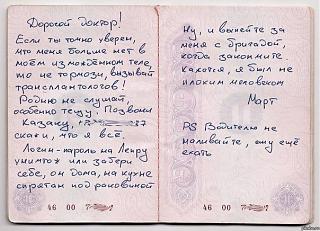 Дорогой доктор!
Если ты точно уверен,
что меня больше нет в
моём измождённом теле,
то не тормози, вызывай
трансплантологов!
Родню не слушай,
особенно тёщу. Позвони
Казаку, 37
скажи, что я всё.
Логин-пароль на Лепру
уничтожь или забери
себе, он дома, на кухне
спрятан под раковиной
46 00
Ну, и выпейте за
меня с бригадой,
когда закончите.
Кажется, я был не
плохим человеком
Март
PS Водителю не
наливайте, ему ещё
ехать
46 00